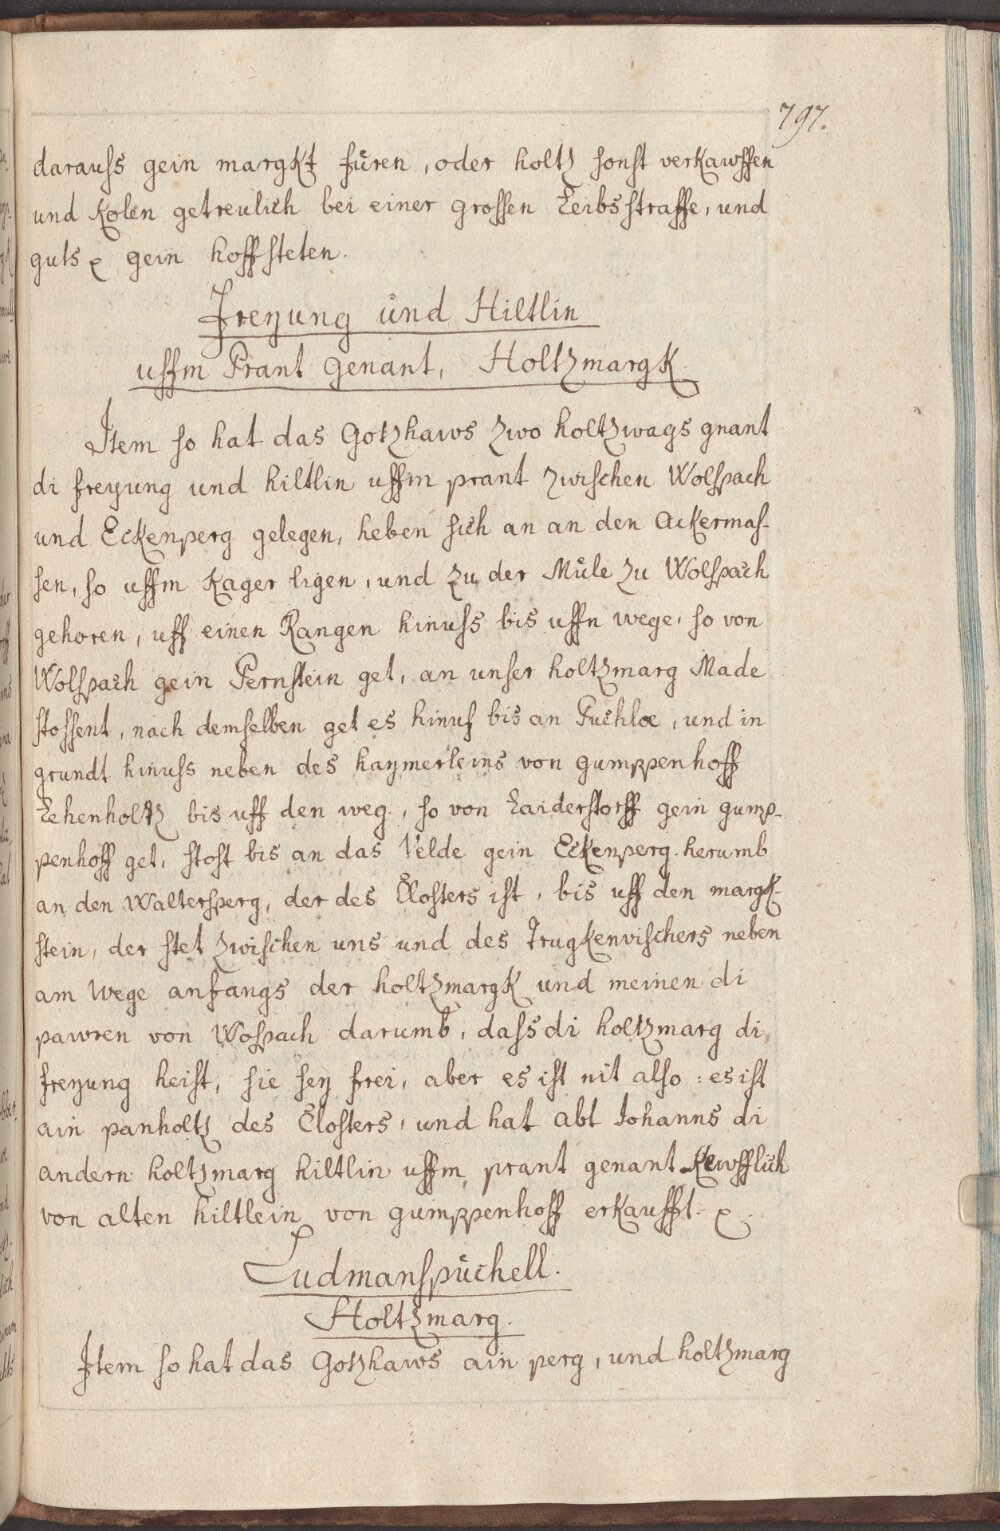 797.
darauss gein margkt füren, oder holtz sonst verkawffen
und Kolen getreulich bei einer grossen Leibsstraffe, und
guts gein hoffsteten.
Freyung und Hiltlin
uffm Prant genant, Holtzmargk.
Item so hat das Gotzhaws zwo holtzwags gnant
di freyung und hiltlin uffm prant zwischen Wolspach
und Eckenperg gelegen, heben sich an an den Ackermas-
sen, so uffm Kager ligen, und zu der Müle zu Wolspach
gehoren, uff einen Rangen hinuss bis uffn wege, so von
Wolspach gein Pernstein get, an unser holtzmarg Made
stossent, nach demselben get es hinuf bis an Puchloe, und in
grundt hinuss neben des haymerleins von gumppenhoff
Lehenholtz bis uff den weg, so von Laiderstorff gein gump-
penhoff get, stost bis an das Velde gein Eckenperg herumb
an den Waltersperg, der des Closters ist, bis uff den margk-
stein, der stet zwischen uns und des Trugkenvischers neben
am Wege anfangs der holtzmargk und meinen di
pawren von Wospach darumb, dass di holtzmarg di
freyung heist, sie sey frei, aber es ist nit also : es ist
ain panholtz des Closters, und hat abt Johanns di
andern holtzmarg hiltlin uffm prant genant Kewfflich
von alten hiltlein von gumppenhoff erkaufft.
Ludmanspüchell.
Holtzmarg.
Item so hat das Gotzhaws ain perg, und holtzmarg